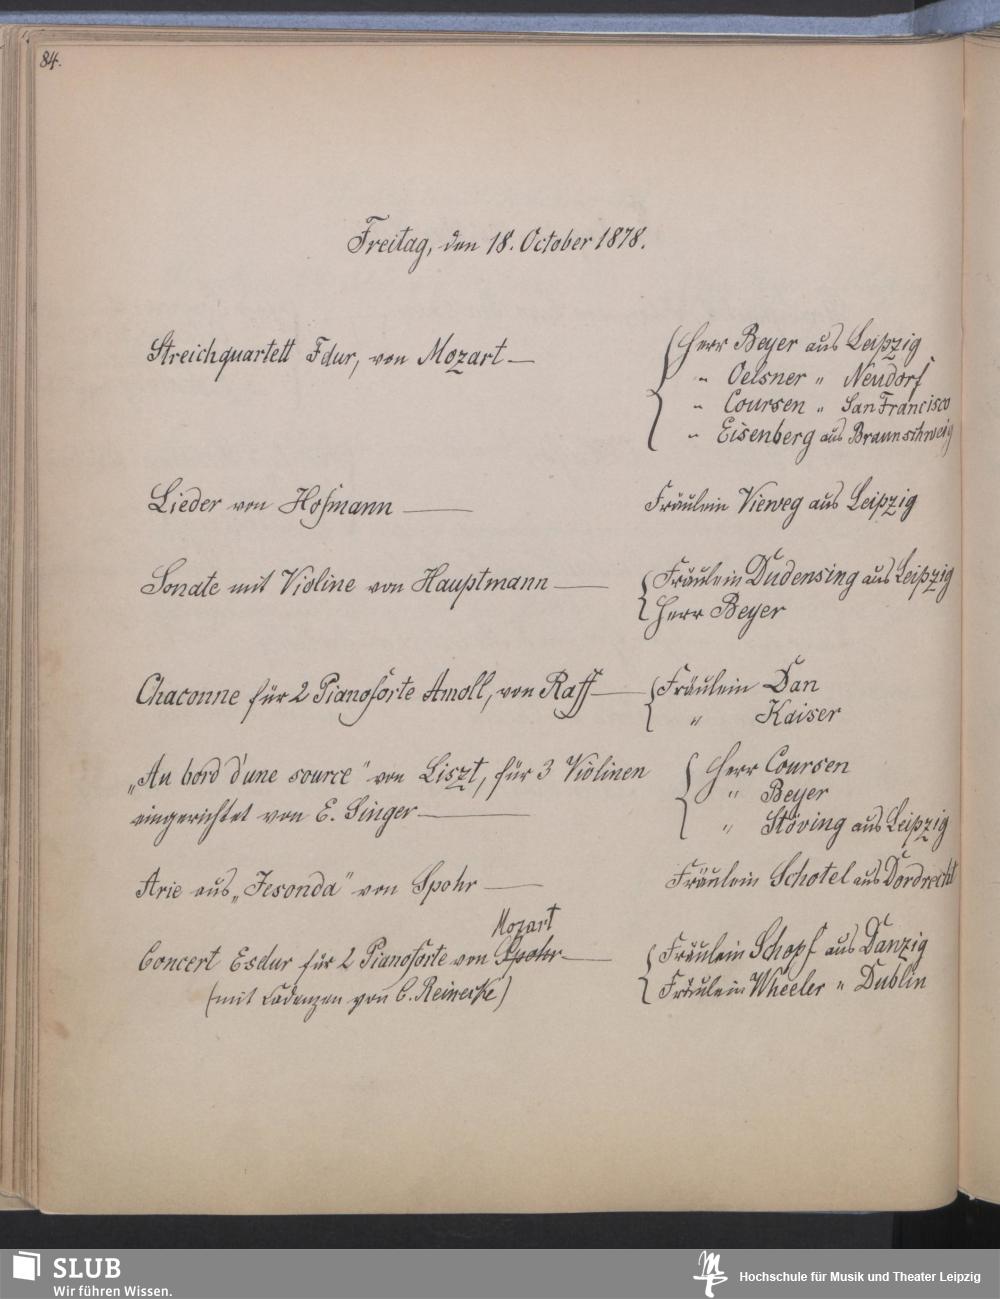 84.
Freitag, den 18. October 1878.
Streichquartett Fdur, von Mozart —
Herr Beyer aus Leipzig
" Oelsner " Neudorf
" Coursen " San Francisco
" Eisenberg aus Braunschweig
Lieder von Hofmann —
Fräulein Vieweg aus Leipzig
Sonate mit Violine von Hauptmann —
Fräulein Dudensing aus Leipzig
Herr Beyer
Chaconne für 2 Pianoforte Amoll, von Raff —
Fräulein Dan
" Kaiser
„Au bord d'une source" von Liszt, für 3 Violinen
eingerichtet von E. Singer —
Herr Coursen
" Beyer
" Störing aus Leipzig
Arie aus „Jesonda" von Spohr —
Fräulein Schotel aus Dordrecht
Mozart
Concert Esdur für 2 Pianoforte von Spohr —
(mit Cadenzen von C. Reinecke)
Fräulein Schopf aus Danzig
Fräulein Wheeler " Dublin
SLUB
Wir führen Wissen.
Hochschule für Musik und Theater Leipzig